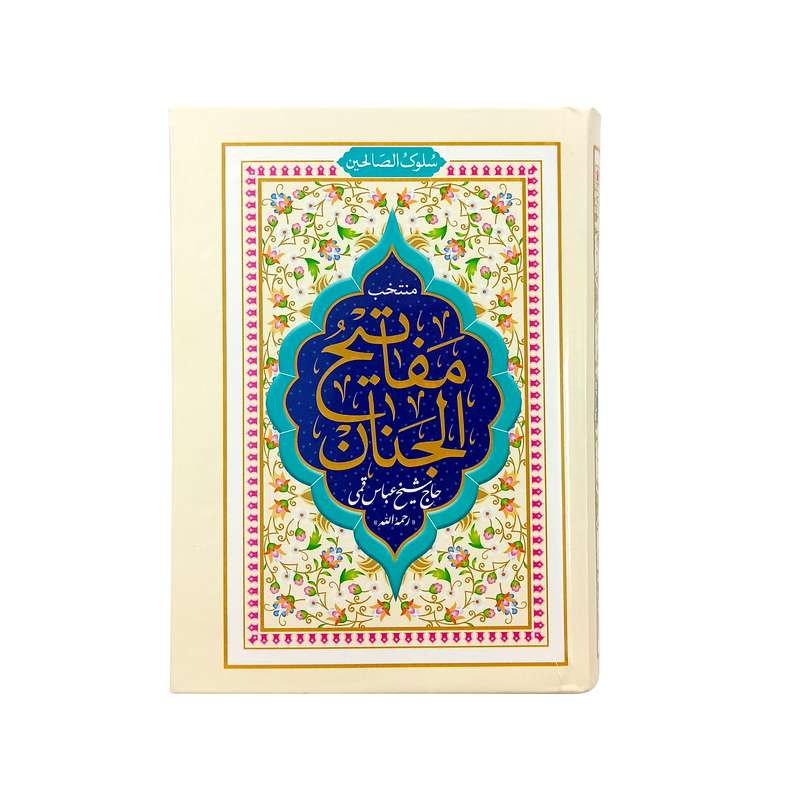 سُلوکُ الصَالحین
منتخب
مَفاتیحُ
الجَنان
حاج شیخ عباس قمی
«رحمة الله»